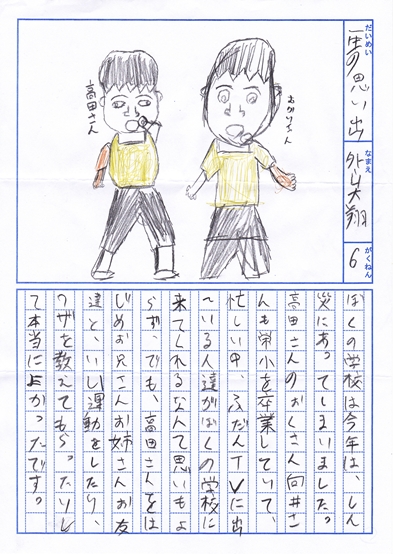 だいめい
一生の思い出
なまえ
外山大翔
がくねん
6
高田さん
ぼくの学校は今年は、しん
災にあってしまいました。
高田さんのおくさん向井さ
んも栄小を卒業していて、
忙しい中、ふだんTVに出
ている人達がぼくの学校に
来てくれるなんて思いもよ
らず、でも、高田さんをは
じめお兄さんお姉さんお友
達と、いい運動をしたり、
ワザを教えてもらったりし
て本当によかったです。